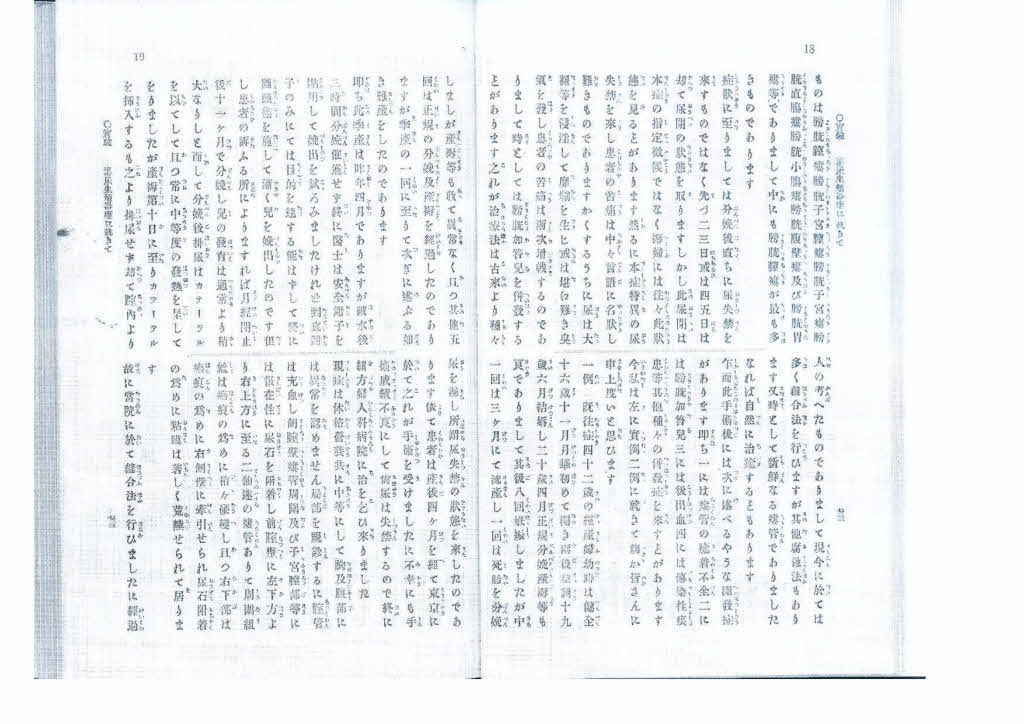 18
〇實驗 泌尿生殖器瘻に就きて
ものは膀胱膣瘻膀胱子宮膣瘻膀胱子宮瘻膀
胱直腸瘻膀胱小腸瘻膀胱腹壁瘻及び膀胱胃
瘻等でありまして中にも膀胱膣瘻が最も多
きものであります
症狀に至りましては分娩後直ちに尿失禁を
來すものではなく先づ二三日或は四五日は
却て尿閉の狀態を取りますしかし此尿閉は
本症の指定徴候ではなく産婦には往々此狀
態を見るとがあります然るに本症特異の尿
失禁を來し患者の苦痛は中々言語に名狀し
難きものでありますかくするうちに尿は大
腿等を浸淫して糜爛を生じ或は堪ね難き臭
氣を發し患者の苦痛は漸次増戟するのであ
りまして時としては膀胱加答兒を併發する
とがあります之れが治療法は古來より種々
人の考へたものでありまして現今に於ては
多く縫合法を行ひますが其他腐蝕法もあり
ます又時として新鮮なる瘻管でありました
なれば自然に治癒するともあります
乍而此手術後には次に述べるやうな開發症
があります即ち一には瘻管の癒着不全二に
は膀胱加答兒三には後出血四には傳染性疾
患等其他種々の併發症を來すとがあります
今私は左に實例二例に就きて聊か皆さんに
申上度いと思ひます
一例、既往症四十二歳の經産婦幼時は健全
十六歳十一月月經初めて開き爾後整調十九
歳六月結婚し二十歳四月正規分娩産褥等も
良でありまして其後八回姙振しましたが中
一回は三ヶ月にて流産し一回は死胎を分娩
19
〇實驗 泌尿生殖器瘻に就きて
しましが産褥等も敢て異常なく且つ其他五
回は正規の分娩及産褥を經過したのであり
ますが季産の一回に至りて次ぎに述ぶる如
き難産をしたのであります
即ち此季産は昨年四月でありますが破水後
三時間分娩催進せず終に醫士は安全鉗子を
貼用して娩出を試ろみましたけれども到底鉗
子のみにては目的を達する能はずして終に
頭顱術を施して漸く兒を娩出したのです但
し患者の訴ふる所によりますれば月經閉止
後十一ヶ月で分娩し兒の發育は通常より稍
大なりしと而して分娩後排尿はカテーテル
を以てして且つ常に中等度の發熱を呈して
をりましたが産褥第十日に至りカテーテル
を挿入するも之より排尿せず却て膣内より
尿を漏し所謂尿失禁の狀態を來したのであ
ります依て患者は産後四ヶ月を經て東京に
於て之れが手術を受けましたに不幸にも手
術成績不良にして尙尿は失禁するので終に
緒方婦人科病院に治を乞ひ來りました
現症は体格營養共に中等にして胸及腹部に
は異常を認めません局部を觸診するに膣管
は充血し前膣壁瘻管周圍及び子宮膣部等に
は散在性に尿石を附着し前膣壁に左下方よ
り右上方に至る二仙迷の瘻管ありて周圍組
織は瘢痕の爲めに治々便變し且つ右下部は
瘢痕の爲めに右側壁に牽引せられ尿石附着
の爲めに粘膜は著しく荒蕪せられて居りま
す
故に當院に於て縫合法を行ひましたに經過